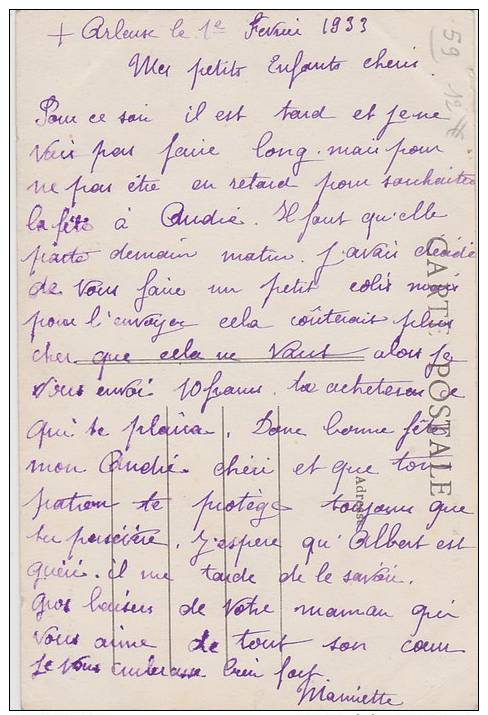 + Arleux le 1e Fevrier 1933
Mes petits Enfants chéris.
Pour ce soir il est tard et je ne
vais pas faire long. mais pour
ne pas être en retard pour souhaiter
la fête à André. Il faut qu'elle
parte demain matin. J'avais décidé
de vous faire un petit colis mais
pour l'envoyer cela coûterait plus
cher que cela ne vaut alors je
vous envoi 10 francs. tu acheteras ce
qui te plaira. Donc bonne fête
mon André chéri et que ton
patron te protège toujours que
tu persévère. J'espere qu'Albert est
guéri. il me tarde de le savoir.
Gros baisers de votre maman qui
vous aime de tout son cœur
je vous embrasse bien fort
CARTE POSTALE
Adresse
59